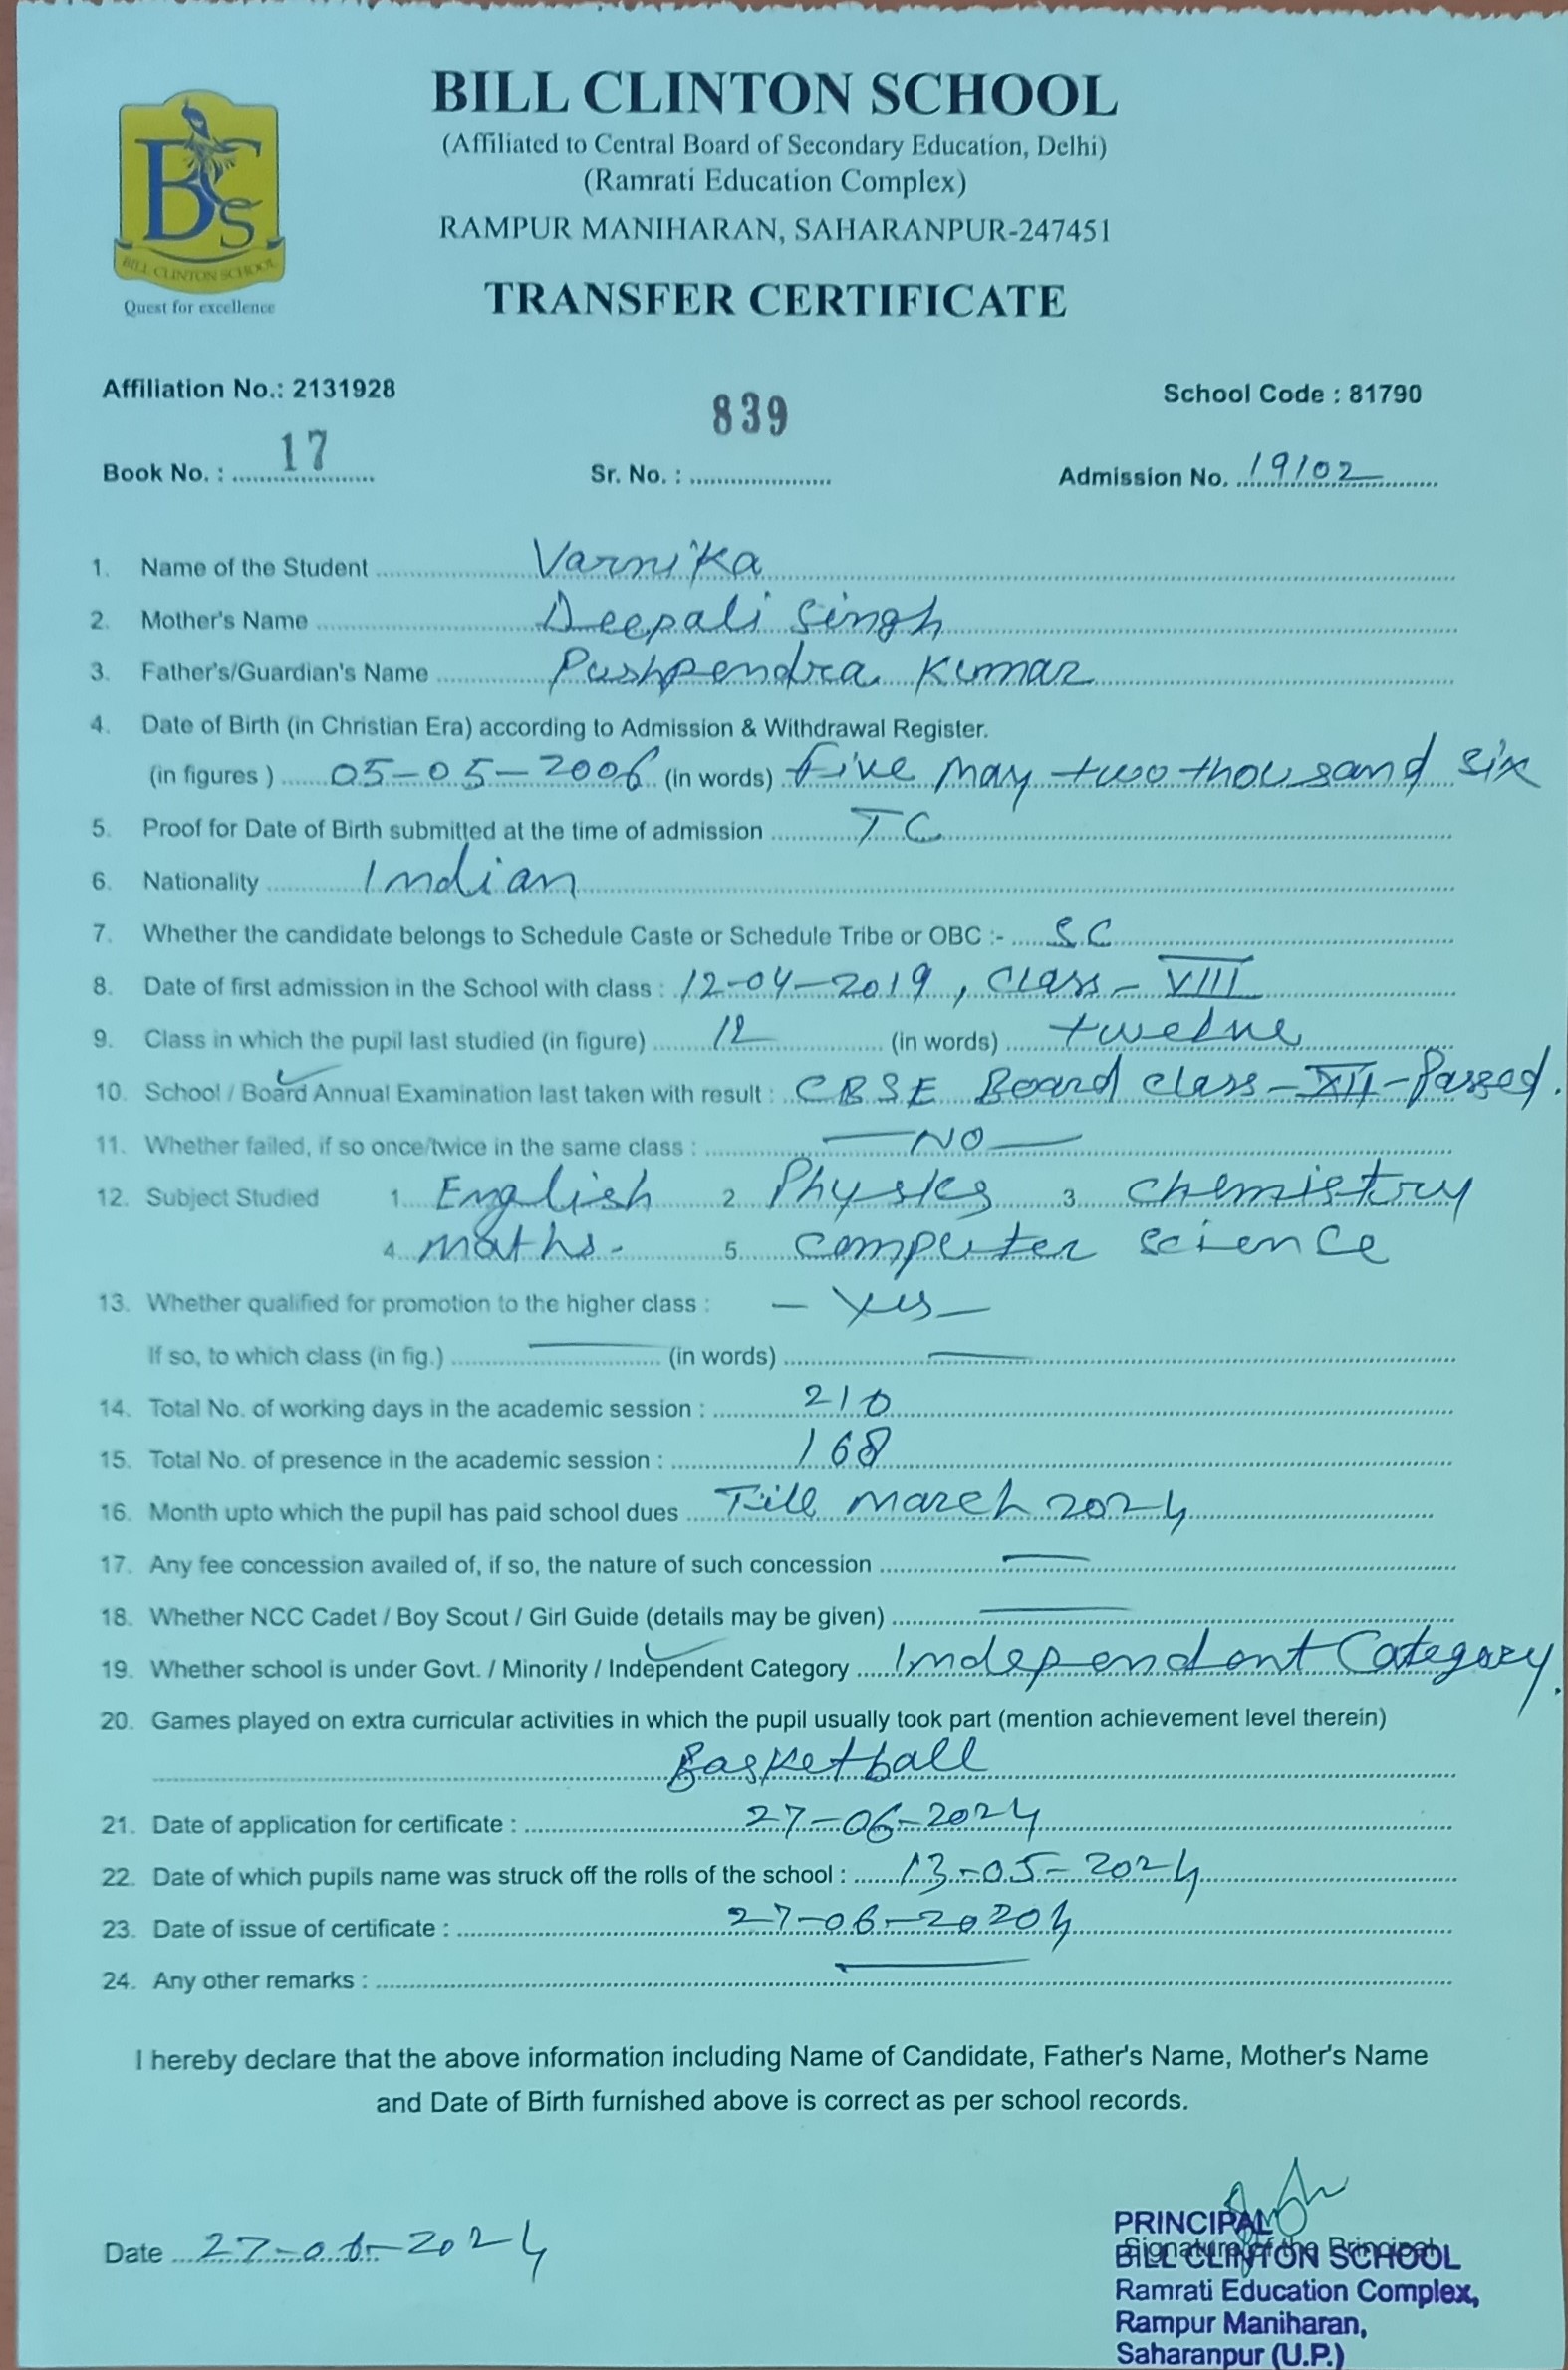 BILL CLINTON SCHOOL
(Affiliated to Central Board of Secondary Education, Delhi)
(Ramrati Education Complex)
RAMPUR MANIHARAN, SAHARANPUR-247451
BCS
BILL CLINTON SCHOOL
Quest for excellence
TRANSFER CERTIFICATE
Affiliation No.: 2131928 School Code : 81790
Book No. : 17 Sr. No. : 839 Admission No. 19/02
1. Name of the Student Varnika
2. Mother's Name Deepali Singh
3. Father's/Guardian's Name Pushpendra Kumar
4. Date of Birth (in Christian Era) according to Admission & Withdrawal Register.
(in figures ) 05-05-2006 (in words) Five may two thousand six
5. Proof for Date of Birth submitted at the time of admission TC
6. Nationality Indian
7. Whether the candidate belongs to Schedule Caste or Schedule Tribe or OBC :- SC
8. Date of first admission in the School with class : 12-04-2019, Class - VIII
9. Class in which the pupil last studied (in figure) 12 (in words) twelve
10. School / Board Annual Examination last taken with result : CBSE Board class-XII-Passed.
11. Whether failed, if so once/twice in the same class : — NO —
12. Subject Studied 1. English 2. Physics 3. Chemistry
4. maths. 5. computer science
13. Whether qualified for promotion to the higher class : — Yes —
If so, to which class (in fig.) — (in words) —
14. Total No. of working days in the academic session : 210
15. Total No. of presence in the academic session : 168
16. Month upto which the pupil has paid school dues Till march 2024
17. Any fee concession availed of, if so, the nature of such concession —
18. Whether NCC Cadet / Boy Scout / Girl Guide (details may be given) —
19. Whether school is under Govt. / Minority / Independent Category Independant Category.
20. Games played on extra curricular activities in which the pupil usually took part (mention achievement level therein)
Basketball
21. Date of application for certificate : 27-06-2024
22. Date of which pupils name was struck off the rolls of the school : 13-05-2024
23. Date of issue of certificate : 27-06-20204
24. Any other remarks : —
I hereby declare that the above information including Name of Candidate, Father's Name, Mother's Name
and Date of Birth furnished above is correct as per school records.
Date 27-06-2024
PRINCIPAL
Signature of the Principal
BILL CLINTON SCHOOL
Ramrati Education Complex,
Rampur Maniharan,
Saharanpur (U.P.)